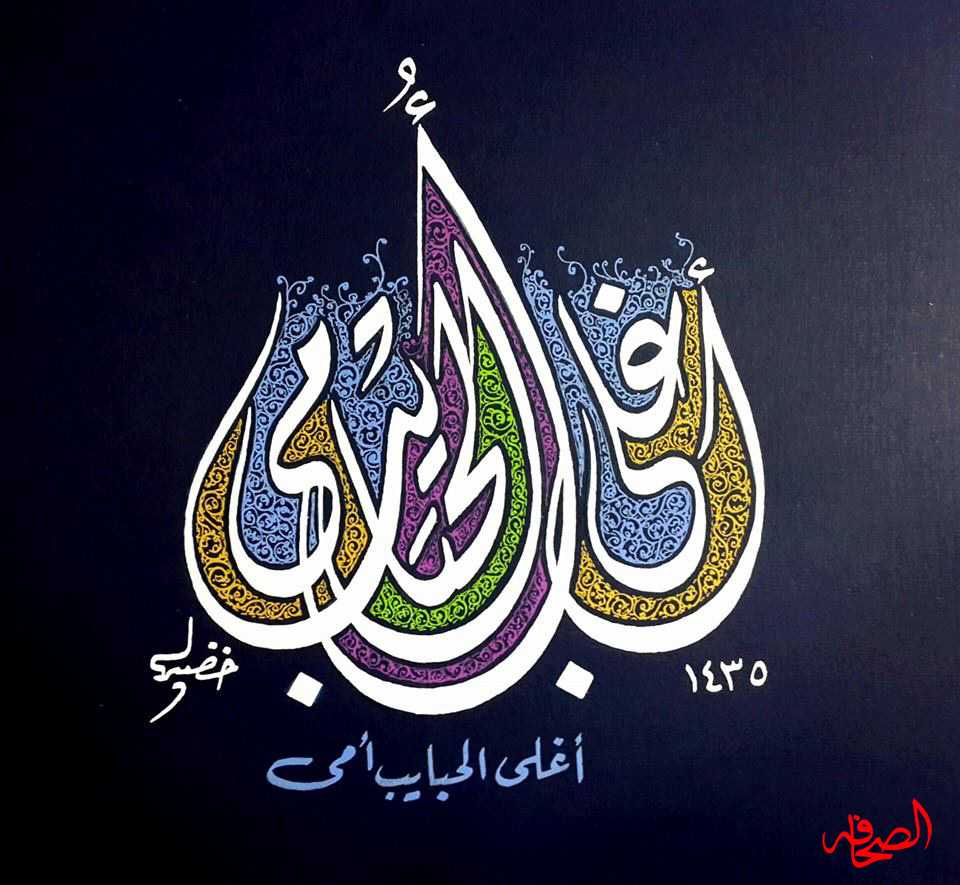 أغلى الحبايب أُمى
١٤٣٥
أغلى الحبايب أمى
الصحافه